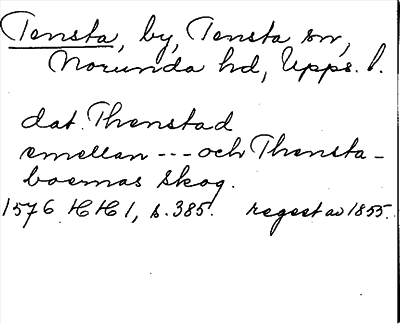 Tensta, by, Tensta sn,
Norunda hd, Upps. l.
dat. Thenstad
emellan --- och Thensta-
boernas skog.
1576 HH 1, s. 385. regest av 1855.